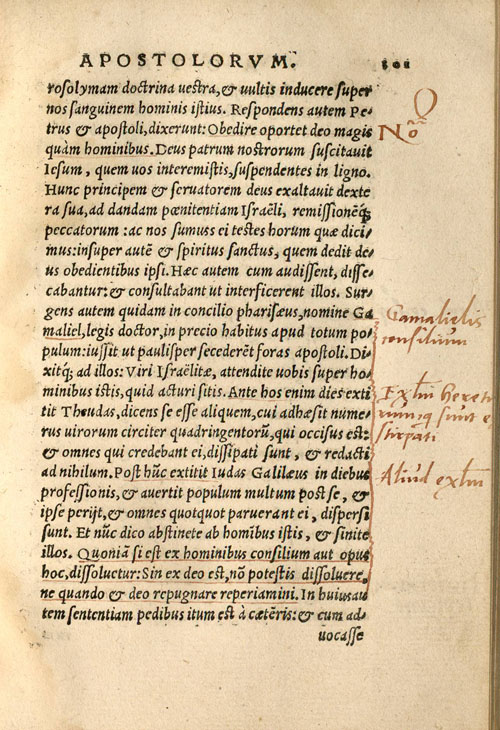 APOSTOLORVM.
rosolymam doctrina uestra, & uultis inducere super
nos sanguinem hominis istius. Respondens autem Pe-
trus & apostoli, dixerunt: Obedire oportet deo magis
quàm hominibus. Deus patrum nostrorum suscitauit
Iesum, quem uos interemistis, suspendentes in ligno.
Hunc principem & seruatorem deus exaltauit dexte
ra sua, ad dandam pœnitentiam Israëli, remissionēq́;
peccatorum: ac nos sumus ei testes horum quæ dici
mus: insuper autē & spiritus sanctus, quem dedit de
us obedientibus ipsi. Hæc autem cum audissent, disse
cabantur: & consultabant ut interficerent illos. Sur
gens autem quidam in concilio pharisæus, nomine Ga
maliel, legis doctor, in precio habitus apud totum po
pulum: iussit ut paulisper secederēt foras apostoli. Di
xitq́; ad illos: Viri Israëlitæ, attendite uobis super ho
minibus istis, quid acturi sitis. Ante hos enim dies exti
tit Theudas, dicens se esse aliquem, cui adhæsit nume
rus uirorum circiter quadringentorū, qui occisus est:
& omnes qui credebant ei, dissipati sunt, & redacti
ad nihilum. Post hūc extitit Iudas Galilæus in diebus
professionis, & auertit populum multum post se, &
ipse perijt, & omnes quotquot paruerant ei, dispersi
sunt. Et nūc dico abstinete ab homībus istis, & sinite
illos. Quoniā si est ex hominibus consilium aut opus
hoc, dissoluetur: Sin ex deo est, nō potestis dissoluere,
ne quando & deo repugnare reperiamini. In huiusau
tem sententiam pedibus itum est à cæteris: & cum ad
uocasse
Gamalielis
consilium
Exlm
sunt
Aliud exlm